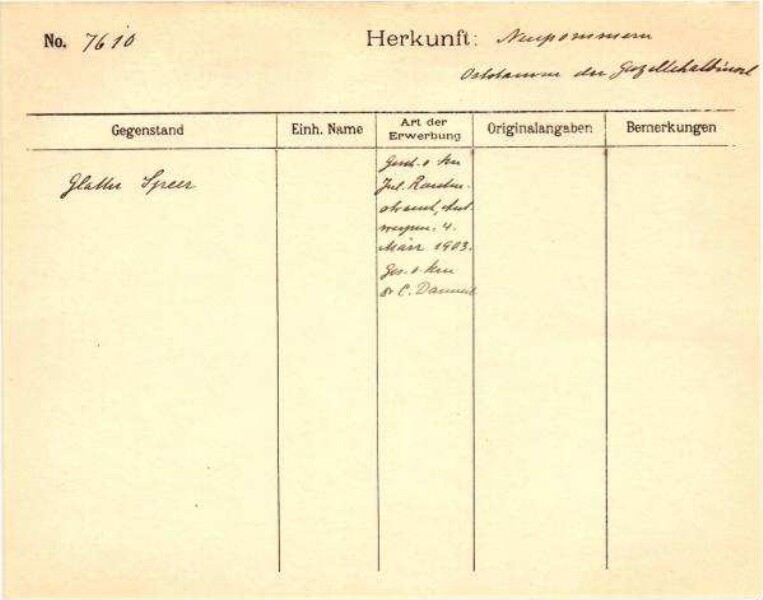 No. 7610
Herkunft: Neupommern
der Gazellehalbinsel
Gegenstand
Einh. Name
Art der
Erwerbung
Originalangaben
Bemerkungen
Glatter Speer
Gesch. v. Hrn
Jul.
Ant-
werpen. 4.
März 1903.
Ges. v. Hrn
Dr C. Danneil